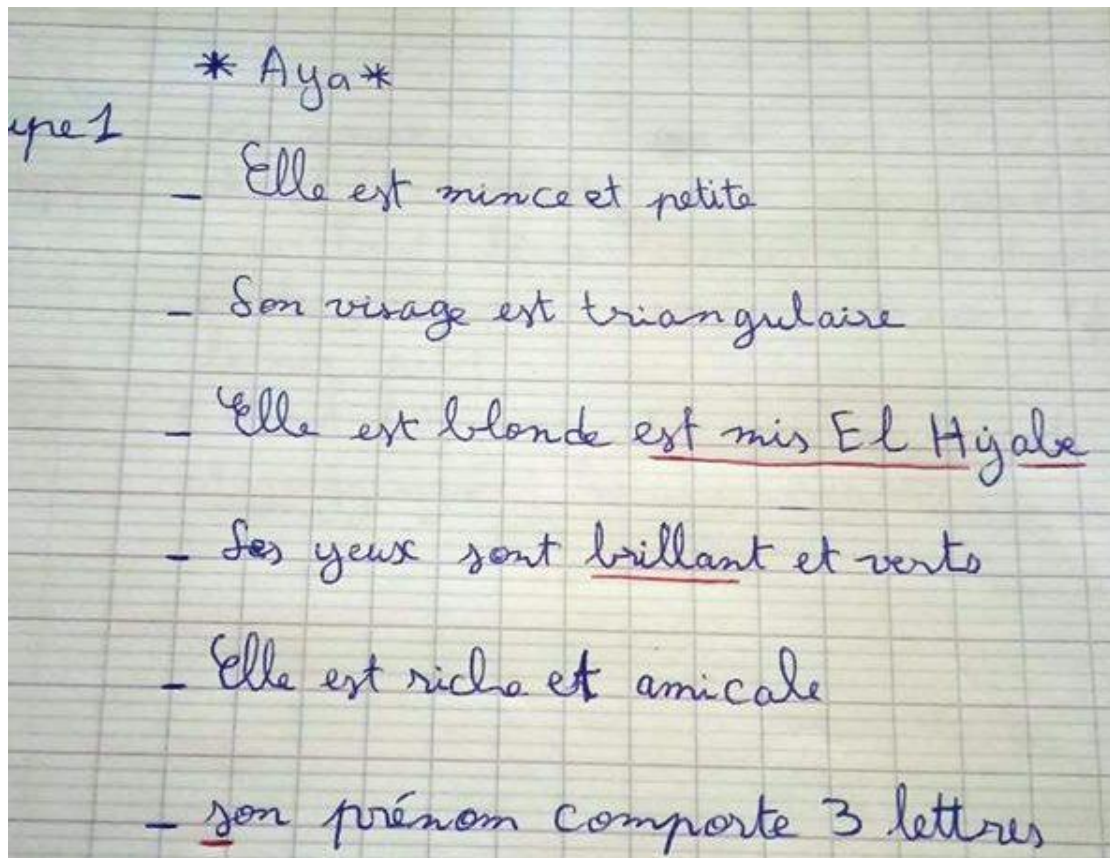 * Aya *
upe 1
- Elle est mince et petite
- Son visage est triangulaire
- Elle est blonde est mis El Hijabe
- Ses yeux sont brillant et verts
- Elle est riche et amicale
- son prénom comporte 3 lettres